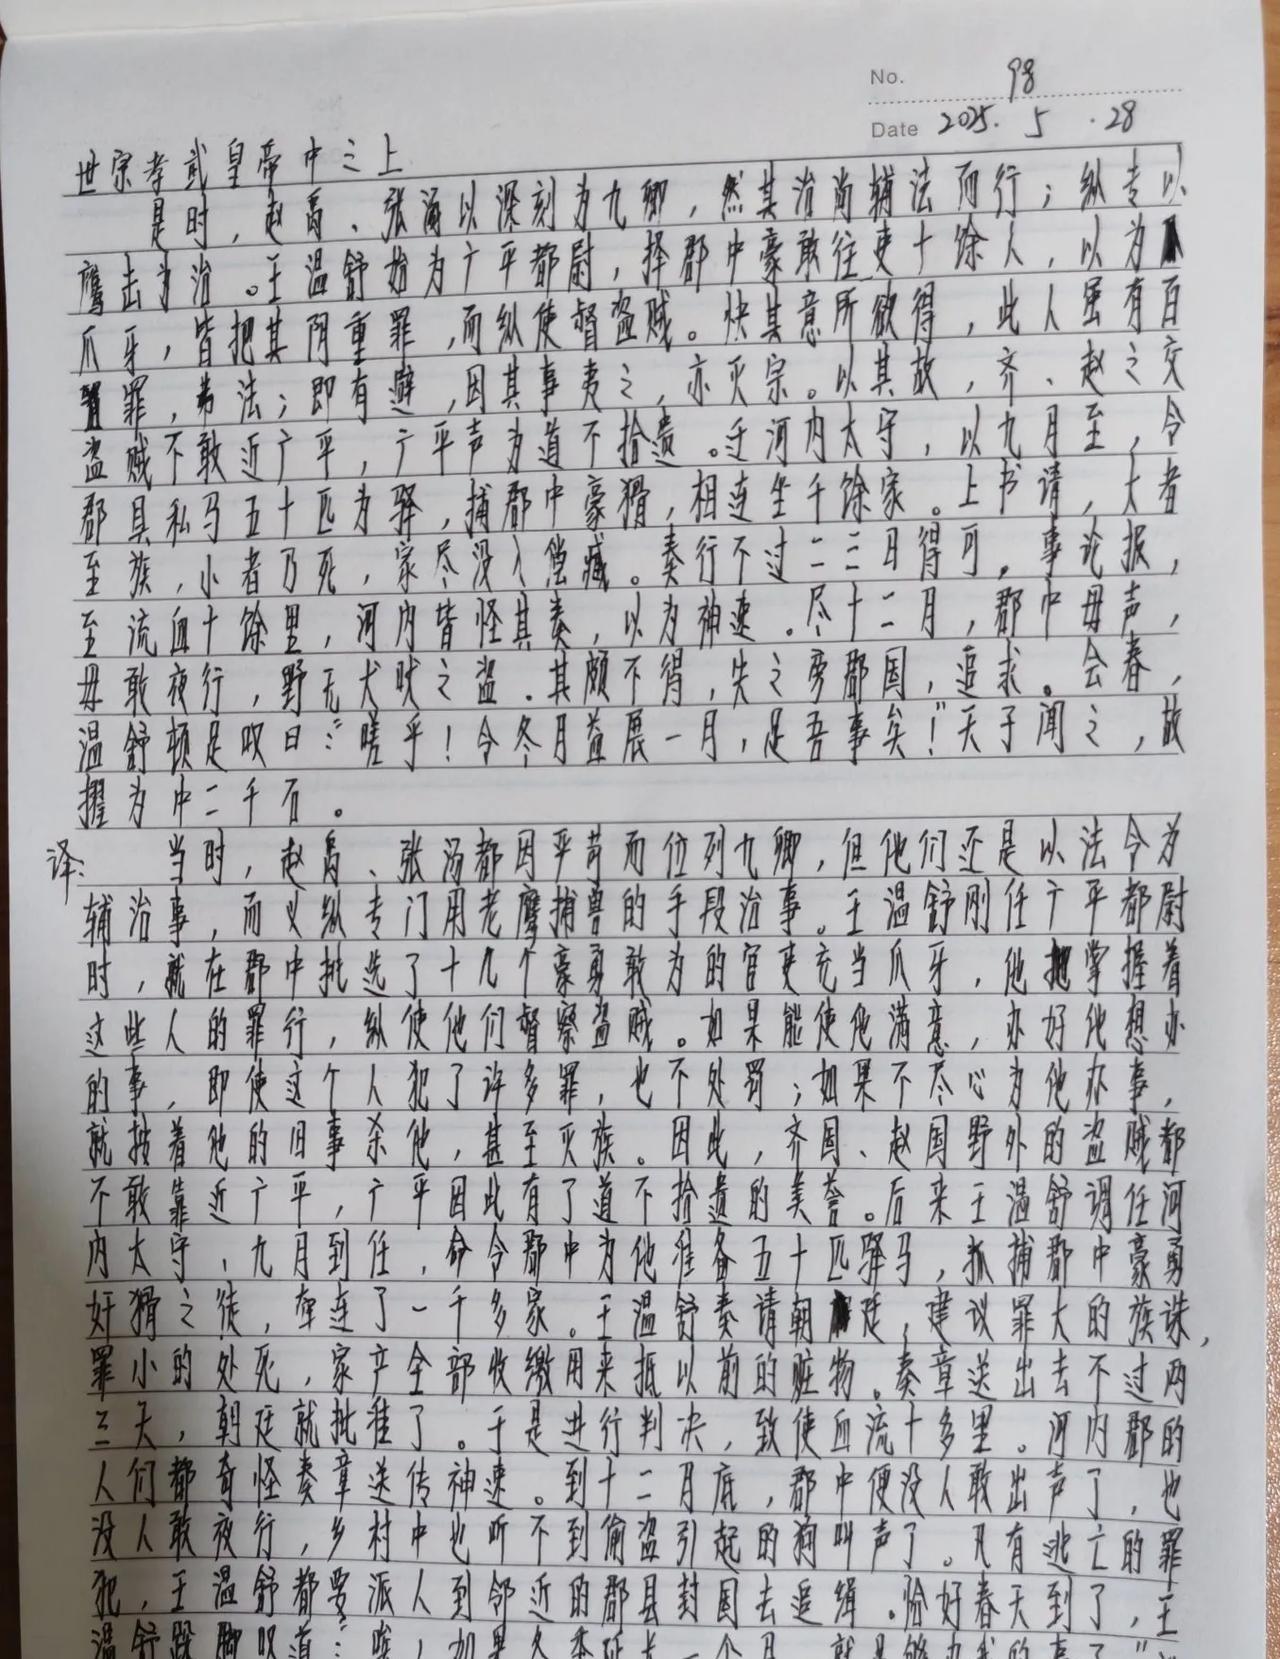 No. 98
Date 2025. 5 .28
世宗孝武皇帝中之上
是时，赵禹、张汤以深刻为九卿，然其治尚辅法而行；纵专以
鹰击为治。王温舒始为广平都尉，择郡中豪敢往吏十馀人，以为
爪牙，皆把其阴重罪，而纵使督盗贼。快其意所欲得，此人虽有百
罪，弗法；即有避，因其事夷之，亦灭宗。以其故，齐、赵之交
盗贼不敢近广平，广平声为道不拾遗。迁河内太守，以九月至，令
郡具私马五十匹为驿，捕郡中豪猾，相连坐千馀家。上书请，大者
至族，小者乃死，家尽没入偿臧。奏行不过二三日得可，事论报，
至流血十馀里，河内皆怪其奏，以为神速。尽十二月，郡中毋声，
毋敢夜行，野无犬吠之盗。其颇不得，失之旁郡国，追求。会春，
温舒顿足叹曰："嗟乎！令冬月益展一月，足吾事矣！"天子闻之，故
擢为中二千石。
译：当时，赵禹、张汤都因严苛而位列九卿，但他们还是以法令为
辅治事，而义纵专门用老鹰捕兽的手段治事。王温舒刚任广平都尉
时，就在郡中挑选了十几个豪勇敢为的官吏充当爪牙，他掌握着
这些人的罪行，纵使他们督察盗贼。如果能使他满意，办好他想办
的事，即使这个人犯了许多罪，也不处罚；如果不尽心为他办事，
就按着他的旧事杀他，甚至灭族。因此，齐国、赵国野外的盗贼都
不敢靠近广平，广平因此有了道不拾遗的美誉。后来王温舒调任河
内太守，九月到任，命令郡中为他准备五十匹驿马，抓捕郡中豪勇
奸猾之徒，牵连了一千多家。王温舒奏请朝廷，建议罪大的族诛，
罪小的处死，家产全部收缴用来抵以前的赃物。奏章送出去不过两
三天，朝廷就批准了。于是进行判决，致使血流十多里。河内郡的
人们都奇怪奏章送传神速。到十二月底，郡中便没人敢出声了，也
没人敢夜行，乡村中也听不到偷盗引起的狗叫声了。凡有逃亡的罪
犯，王温舒都要派人到邻近的郡县封国去追缉。恰好春天到了，王
温舒跺脚叹道："唉，如果冬季延长一个月，就足够办我的事了"